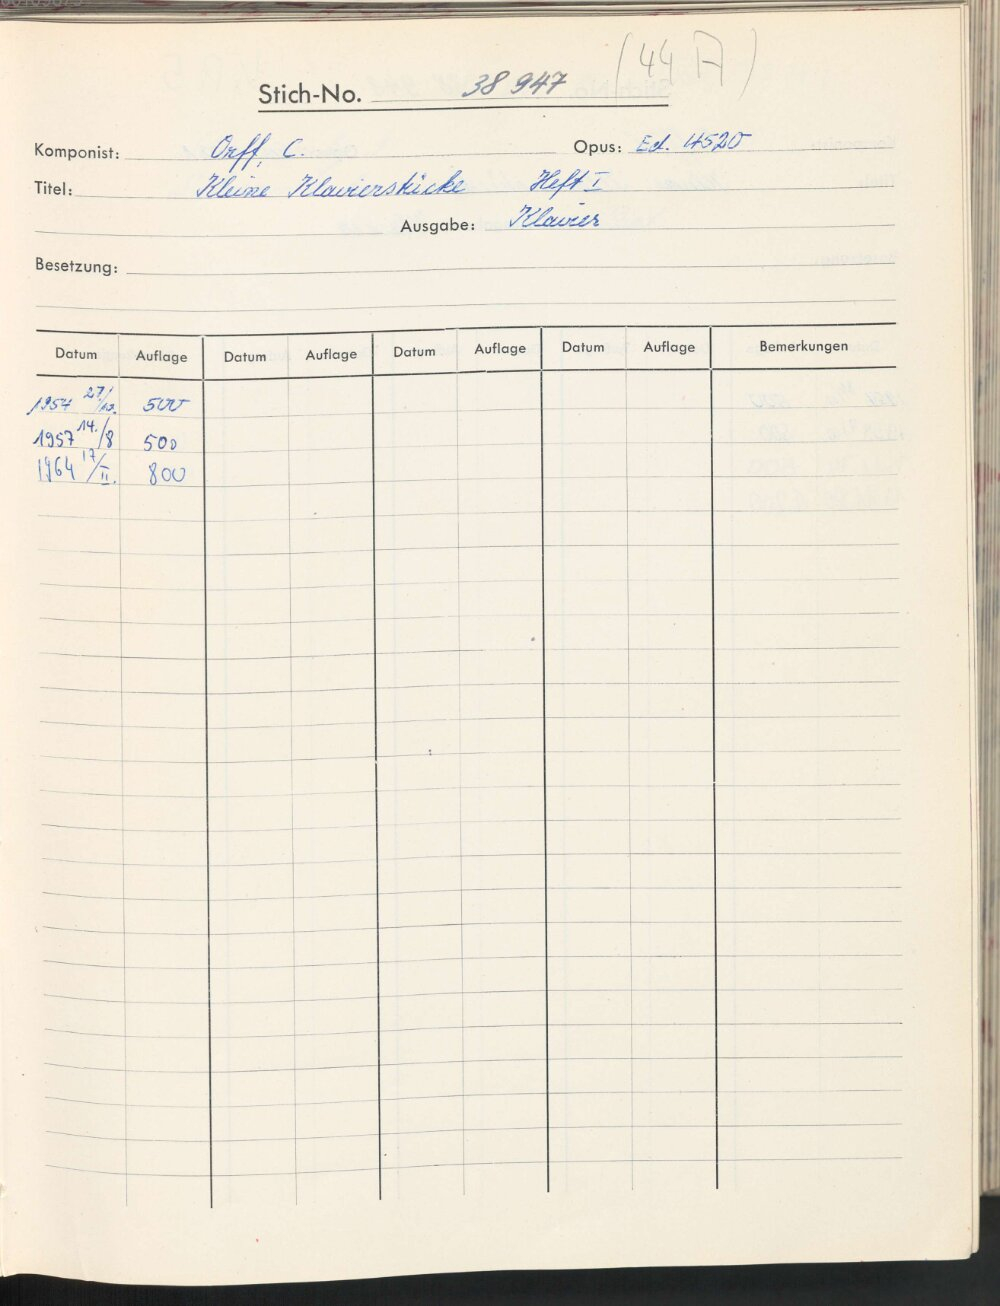 (44 A)
Stich-No. 38 947
Komponist: Orff, C. Opus: Ed. 4520
Titel: Kleine Klavierstücke Heft I
Ausgabe: Klavier
Besetzung:
Datum Auflage Datum Auflage Datum Auflage Datum Auflage Bemerkungen
1954 27./12. 500
1957 14./8 500
1964 17/II. 800